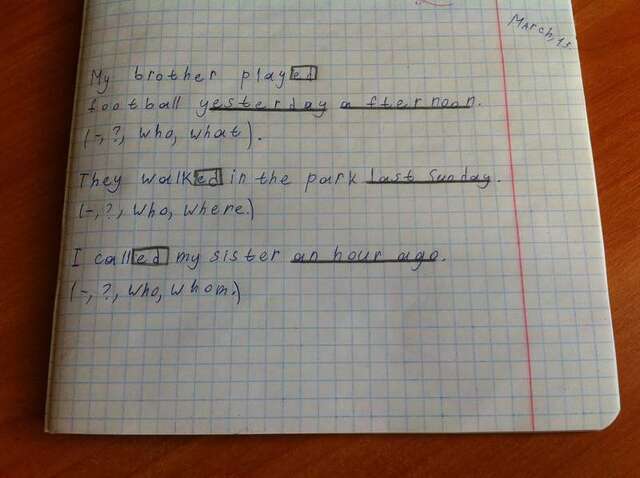 March, 15
My brother played
football yesterday afternoon.
(-, ?, who, what).
They walked in the park last Sunday.
(-, ?, who, where.)
I called my sister an hour ago.
(-, ?, who, whom.)